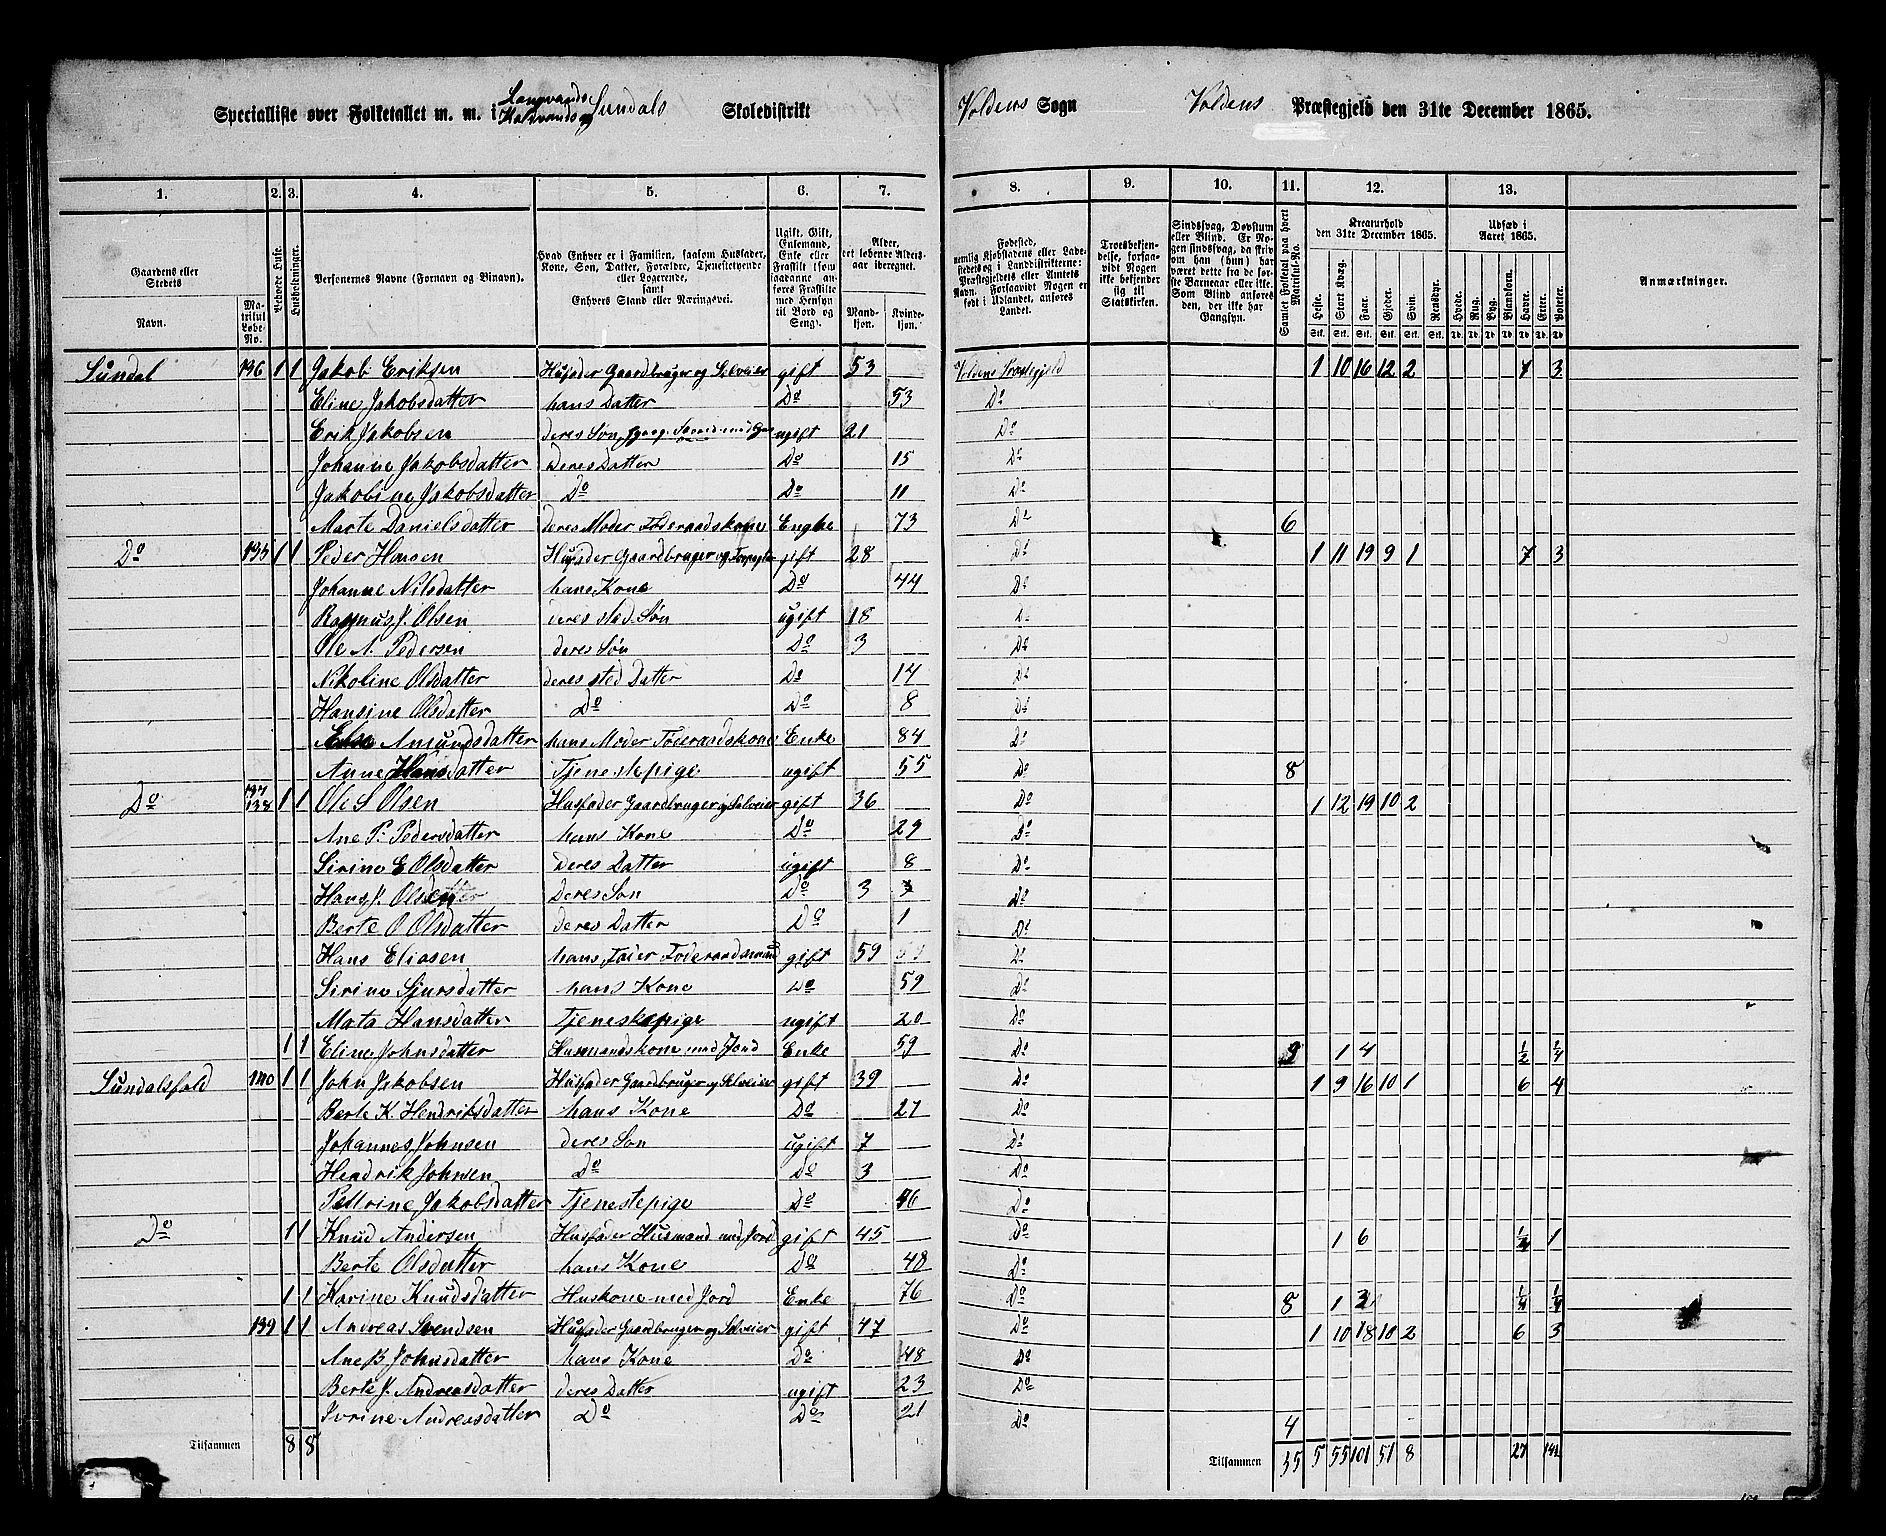 Specialliste over Folketallet m. m. i Langvands Kalvvands og Sundals Skoledistrikt Voldens Sogn Voldens Præstegjeld den 31te December 1865.
1. 2. 3. 4. 5. 6. 7. 8. 9. 10. 11. 12. 13.
Gaardens eller Stedets Navn. Matrikul Løbe-No. Beboede Huse. Husholdninger. Personernes Navne (Fornavn og Binavn). Hvad Enhver er i Familien, saasom Husfader, Kone, Søn, Datter, Forældre, Tjenestetyende eller Logerende, samt Enhvers Stand eller Næringsvei. Ugift, Gift, Enkemand, Enke eller Fraskilt (som saadanne anføres Fraskilte med Hensyn til Bord og Seng). Alder, det løbende Aldersaar iberegnet. Mandkjøn. Kvindekjøn.
Fødested, nemlig Kjøbstadens eller Ladestedets og i Landdistrikterne: Præstegjeldets eller Amtets Navn. Forsaavidt Nogen er født i Udlandet, anføres Landet. Troesbekjendelse, forsaavidt Nogen ikke bekjender sig til Statskirken. Sindssvag, Døvstum eller Blind. Er Nogen sindssvag, da skriv om han (hun) har været dette fra de første Barneaar eller ikke. Som Blind anføres den, der ikke har Gangsyn. Samlet Folketal paa hvert Matrikul-No. Kreaturhold den 31te December 1865. Udsæd i Aaret 1865. Anmærkninger.
Heste. Stort Kvæg. Faar. Gjeder. Svin. Rensdyr. Hvede. Rug. Byg. Blandkorn. Havre. Erter. Poteter.
Sundal 136 1 1 Jakob Eriksen Husfader Gaardbruger og Selveier gift 53 Voldens Præstegjeld 1 10 16 12 2 7 3
Eline Jakobsdatter hans Datter Do 53 Do
Erik Jakobsen deres Søn ugift 21 Do
Johanne Jakobsdatter Deres Datter Do 15 Do
Jakobine Jakobsdatter Do Do 11 Do
Marte Danielsdatter deres Moder Føderaadskone Enghe 73 Do 6
Do 135 1 1 Peder Hansen Husfader Gaardbruger og gift 28 Do 1 11 19 9 1 7 3
Johanne Nilsdatter hans Kone Do 44 Do
Rasmus J. Olsen deres sted. Søn ugift 18 Do
Ole N. Pedersen deres Søn Do 3 Do
Nikoline Olsdatter deres sted Datter Do 14 Do
Hansine Olsdatter Do Do 8 Do
Else Amundsdatter hans Moder Føderaadskone Enke 84 Do
Anne Hansdatter Tjenestepige ugift 55 Do 8
Do 137 138 1 1 Ole S Olsen Husfader Gaardbruger og Selveier gift 36 Do 1 12 19 10 2
Ane P. Pedersdatter hans Kone Do 29 Do
Sirine E Olsdatter Deres Datter ugift 8 Do
Hans J. Olsen Deres Søn Do 3 3 Do
Berte O Olsdatter deres Datter Do 1 Do
Hans Eliasen hans Fader Føderaadsmand gift 59 Do
Sirine Sjursdatter hans Kone Do 59 Do
Mata Hansdatter Tjenestepige ugift 20 Do
1 1 Eline Johnsdatter Husmandskone med Jord Enke 59 Do 9 1 4 1/2 1/4
Sundalsfald 140 1 1 John Jakobsen Husfader Gaardbruger og Selveier gift 39 Do 1 9 16 10 1 6 4
Berte K. Hendriksdatter hans Kone Do 27 Do
Johannes Johnsen deres Søn ugift 7 Do
Hendrik Johnsen Do Do 3 Do
Petrine Jakobsdatter Tjenestepige Do 46 Do
Do 1 1 Knud Andersen Husfader Husmand med Jord gift 45 Do 1 6 1
Berte Olsdatter hans Kone Do 48 Do
1 1 Karine Knudsdatter Huskone med Jord Enke 76 Do 8 1 1/4 1/4
139 1 1 Andreas Svendsen Husfader Gaardbruger og Selveier gift 47 Do 1 10 18 10 2 6 3
Ane B Johnsdatter hans Kone Do 48 Do
Berte J. Andreasdatter deres Datter ugift 23 Do
Ivrine Andreasdatter Do Do 21 Do 4
Tilsammen 8 8 Tilsammen 35 5 55 101 51 8 27